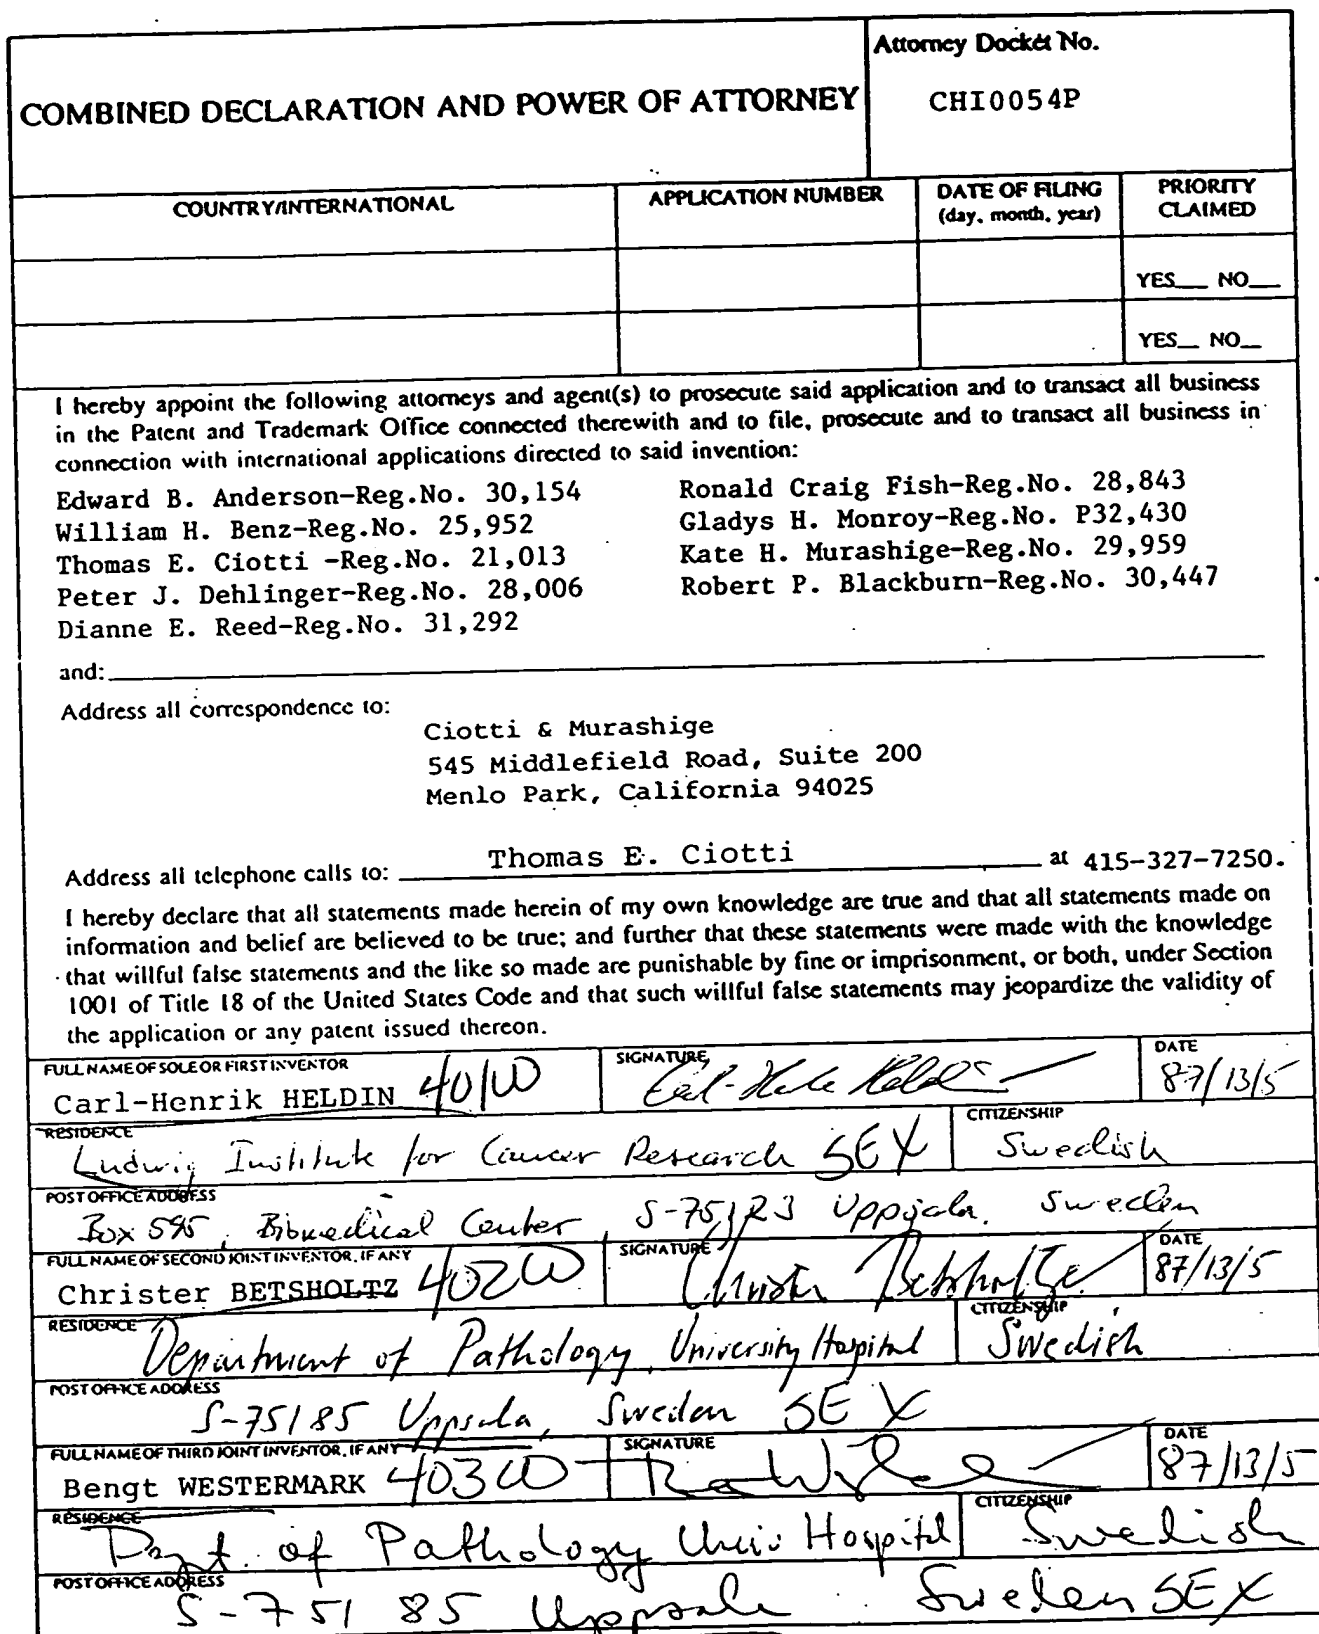 COMBINED DECLARATION AND POWER OF ATTORNEY
Attorney Docket No.
CHI0054P
COUNTRY/INTERNATIONAL
APPLICATION NUMBER
DATE OF FILING
(day, month, year)
PRIORITY
CLAIMED
YES__ NO__
YES__ NO__
I hereby appoint the following attorneys and agent(s) to prosecute said application and to transact all business
in the Patent and Trademark Office connected therewith and to file, prosecute and to transact all business in
connection with international applications directed to said invention:
Edward B. Anderson-Reg.No. 30,154
William H. Benz-Reg.No. 25,952
Thomas E. Ciotti -Reg.No. 21,013
Peter J. Dehlinger-Reg.No. 28,006
Dianne E. Reed-Reg.No. 31,292
Ronald Craig Fish-Reg.No. 28,843
Gladys H. Monroy-Reg.No. P32,430
Kate H. Murashige-Reg.No. 29,959
Robert P. Blackburn-Reg.No. 30,447
and:
Address all correspondence to:
Ciotti & Murashige
545 Middlefield Road, Suite 200
Menlo Park, California 94025
Address all telephone calls to: Thomas E. Ciotti at 415-327-7250.
I hereby declare that all statements made herein of my own knowledge are true and that all statements made on
information and belief are believed to be true; and further that these statements were made with the knowledge
that willful false statements and the like so made are punishable by fine or imprisonment, or both, under Section
1001 of Title 18 of the United States Code and that such willful false statements may jeopardize the validity of
the application or any patent issued thereon.
FULL NAME OF SOLE OR FIRST INVENTOR
Carl-Henrik HELDIN 401W
SIGNATURE
DATE
87/13/5
RESIDENCE
Ludwig Institute for Cancer Research SEX
CITIZENSHIP
Swedish
POST OFFICE ADDRESS
Box 595, Biomedical Center, S-75123 Uppsala, Sweden
FULL NAME OF SECOND JOINT INVENTOR, IF ANY
Christer BETSHOLTZ 402W
SIGNATURE
Christer Betsholtz
DATE
87/13/5
RESIDENCE
Department of Pathology, University Hospital
CITIZENSHIP
Swedish
POST OFFICE ADDRESS
S-75185 Uppsala, Sweden SEX
FULL NAME OF THIRD JOINT INVENTOR, IF ANY
Bengt WESTERMARK 403W
SIGNATURE
DATE
87/13/5
RESIDENCE
Dept. of Pathology Univ Hospital
CITIZENSHIP
Swedish
POST OFFICE ADDRESS
S-751 85 Uppsala Sweden SEX